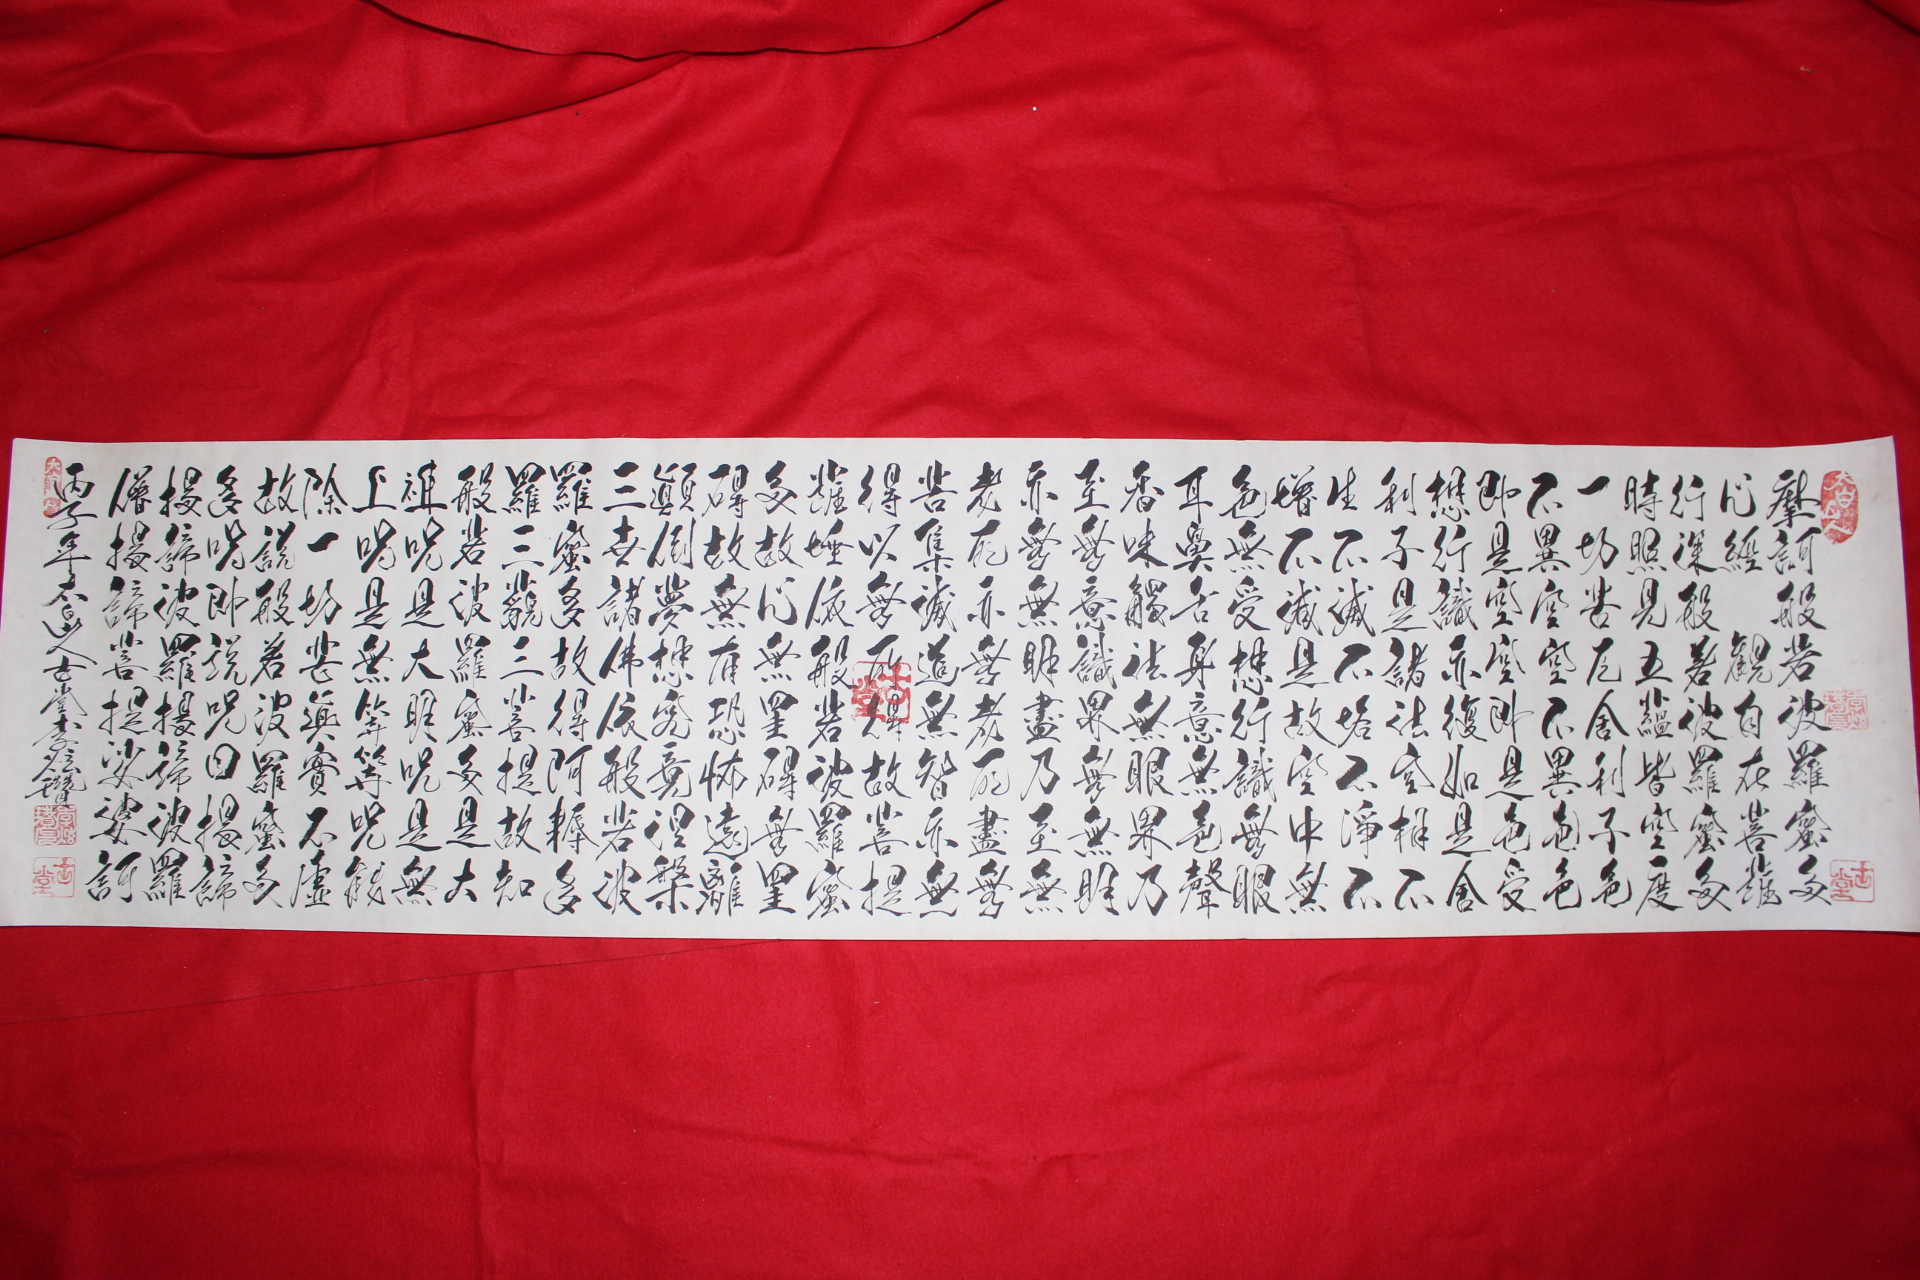 摩訶般若波羅蜜多
心經 觀自在菩薩
行深般若波羅蜜多
時照見五蘊皆空度
一切苦厄舍利子色
不異空空不異色色
即是空空即是色受
想行識亦復如是舍
利子是諸法空相不
生不滅不垢不淨不
增不減是故空中無
色無受想行識無眼
耳鼻舌身意無色聲
香味觸法無眼界乃
至無意識界無無明
亦無無明盡乃至無
老死亦無老死盡無
苦集滅道無智亦無
得以無所得故菩提
薩埵依般若波羅蜜
多故心無罣碍無罣
碍故無有恐怖遠離
顚倒夢想究竟涅槃
三世諸佛依般若波
羅蜜多故得阿耨多
羅三藐三菩提故知
般若波羅蜜多是大
神呪是大明呪是無
上呪是無等等呪能
除一切苦眞實不虛
故說般若波羅蜜多
多呪即說呪曰揭諦
揭諦波羅揭諦波羅
僧揭諦菩提娑婆訶
丙子年太白山人古堂李
古堂